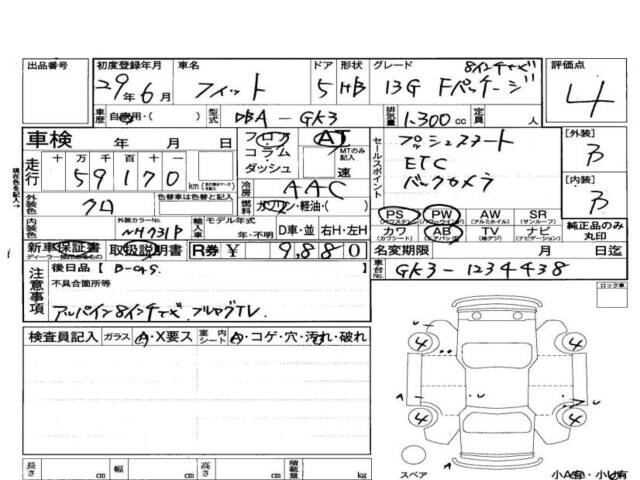 出品番号 初度登録年月 車名 ドア 形状 グレード 8インチナビ 評価点
29年6月 フィット 5 HB 13G Fパッケージ 4
車歴 自家用・( ) 型式 DBA-GK3 排気量 1.300cc 定員 人
車検 年 月 日 フロア AT セールスポイント プッシュスタート [外装] B
走行 十万千百十 コラム MTのみ記入 ETC
59170 km ダッシュ 速 バックカメラ [内装] B
冷房 AAC
外装色 クロ 色替車は色替と記入 燃料 ガソリン・軽油・( ) PS PW AW SR 純正品のみ丸印
(パワステ) (パワーウインド) (アルミホイル) (サンルーフ)
内装色 外装カラーNo. NH731P 輸入車 モデル年式 年・不明 D車・並 右H・左H カワ AB TV ナビ
(カワシート) (エアバッグ) (地デジ) (ナビゲーション)
新車保証書 取扱説明書 R券 ¥ 9,880 名変期限 月 日迄
車台No. GK3-1234438
注意事項 後日品【 】
不具合箇所等 ロック車
アルパイン8インチナビ、フルセグTV、
検査員記入 ガラス A・X要ス 室内シート A・コゲ・穴・汚れ・破れ
U
4 4
A U
4 4
A
スペア
長さ cm 幅 cm 高さ cm 積載量 kg 小A有・小U有
現在色を記入→